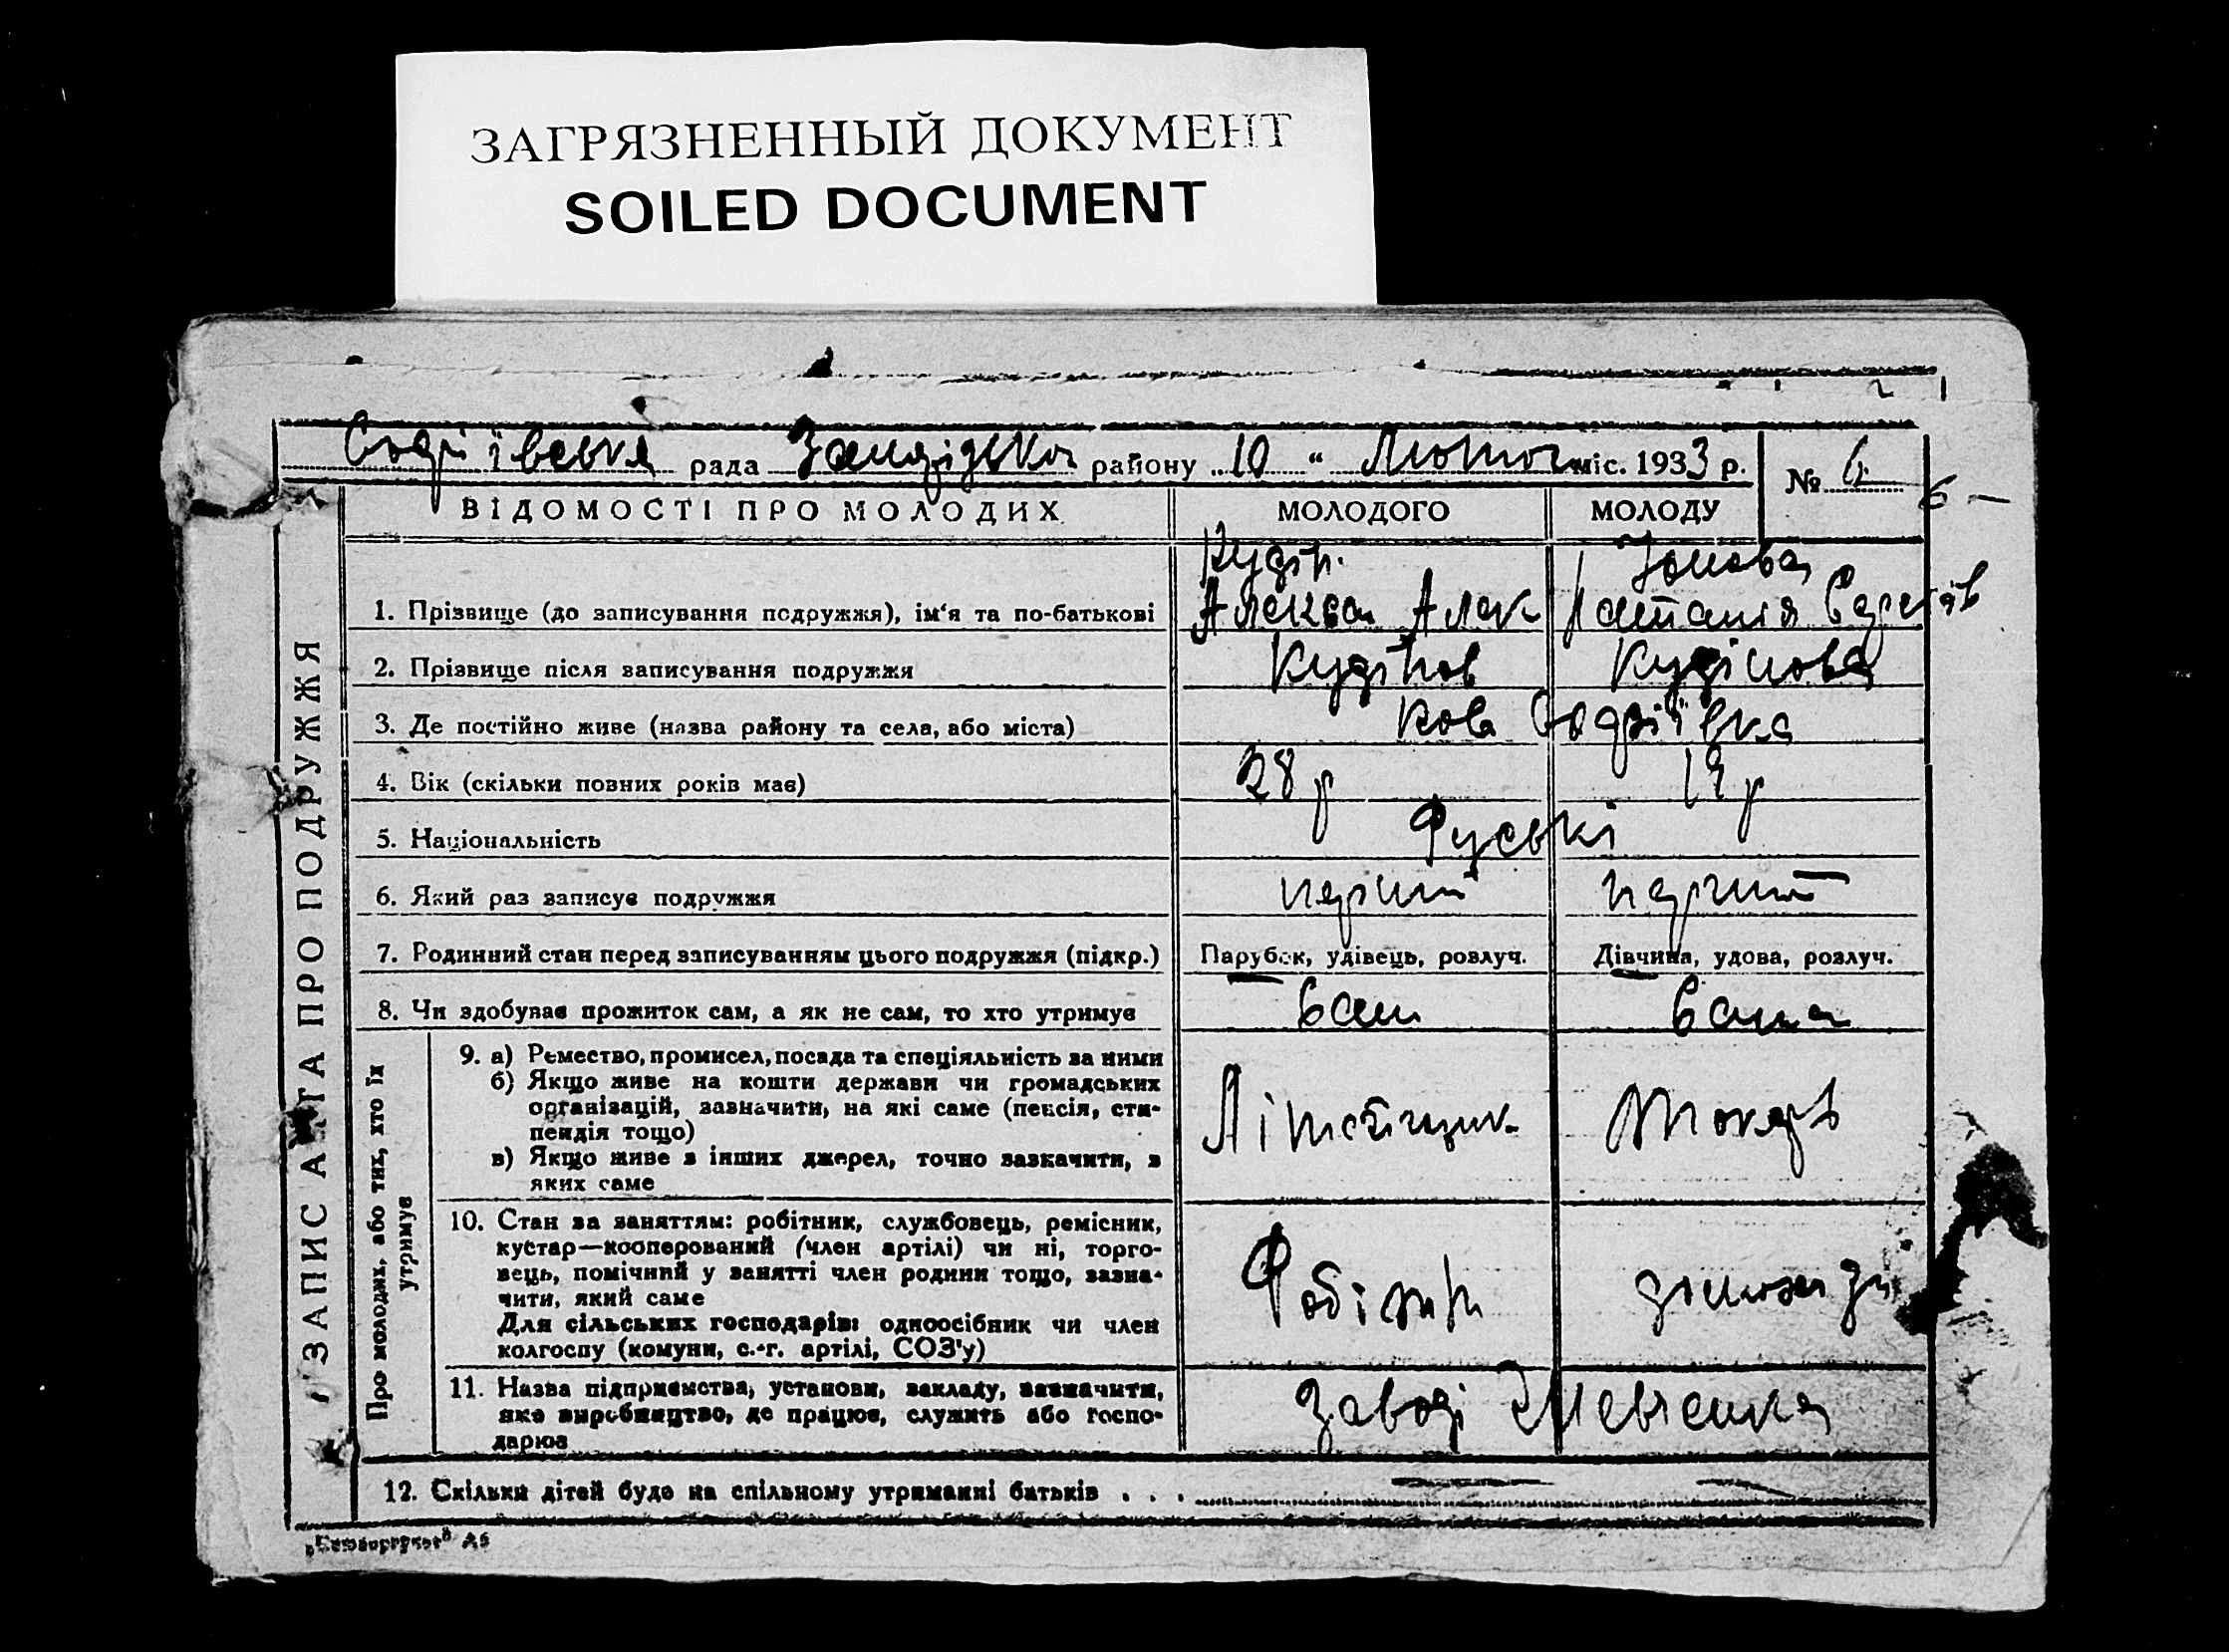 ЗАГРЯЗНЕННЫЙ ДОКУМЕНТ
SOILED DOCUMENT
рада району „10 “ міс. 1933 р.
№ 6
6 —
ЗАПИС АКТА ПРО ПОДРУЖЖЯ
ВІДОМОСТІ ПРО МОЛОДИХ МОЛОДОГО МОЛОДУ
1. Прізвище (до записування подружжя), ім‘я та по-батькові
2. Прізвище після записування подружжя Кудінов Кудінова
3. Де постійно живе (назва району та села, або міста)
4. Вік (скільки повних років має) 28 р 19 р
5. Національність Руські
6. Який раз записує подружжя
7. Родинний стан перед записуванням цього подружжя (підкр.) Парубок, удівець, розлуч. Дівчина, удова, розлуч.
8. Чи здобував прожиток сам, а як не сам, то хто утримує сам сама
Про молодих, або тих, хто їх утримує
9. а) Ремество, промисел, посада та спеціяльність за ними
б) Якщо живе на кошти держави чи громадських
організацій, зазначити, на які саме (пенсія, сти-
пендія тощо)
в) Якщо живе з інших джерел, точно зазначити, з
яких саме
Токарь
10. Стан за заняттям: робітник, службовець, ремісник,
кустар—кооперований (член артілі) чи ні, торго-
вець, помічний у занятті член родини тощо, зазна-
чити, який саме
Для сільських господарів: одноосібник чи член
колгоспу (комуни, с.-г. артілі, СОЗ'у)
11. Назва підприємства, установи, закладу, зазначити,
яке виробництво, де працює, служить або госпо-
дарює
Заводі Шевченка
12. Скільки дітей буде на спільному утриманні батьків . . .